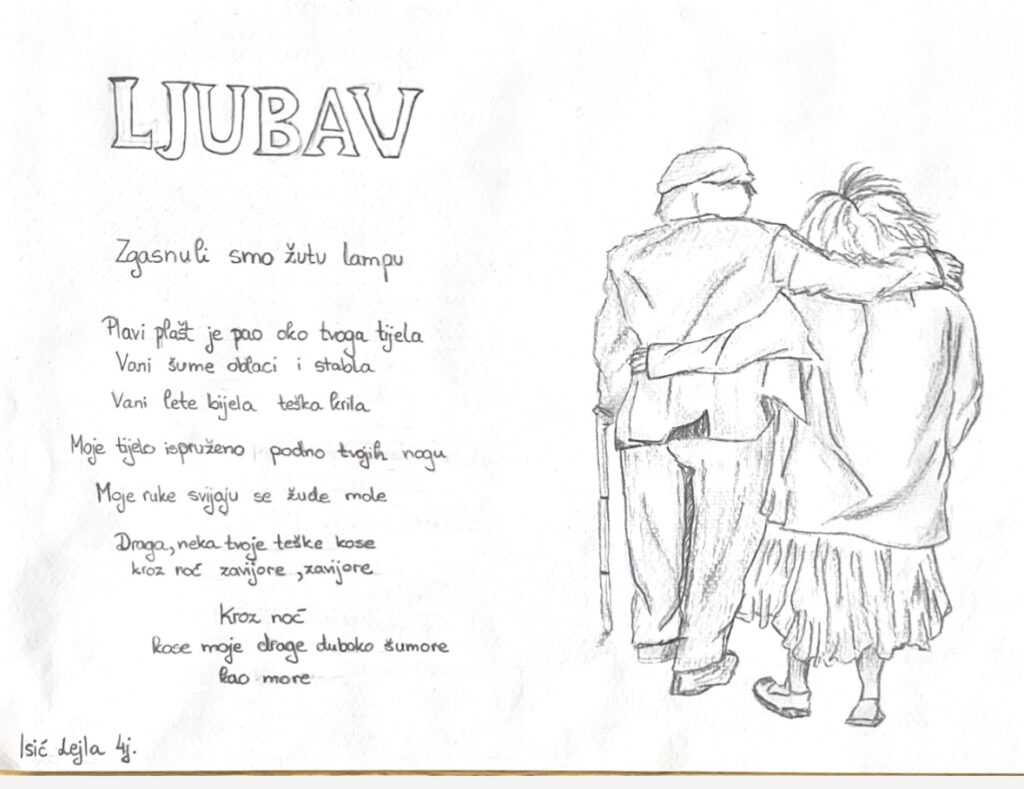 LJUBAV
Zgasnuli smo žutu lampu
Plavi plašt je pao oko tvoga tijela
Vani šume oblaci i stabla
Vani lete bijela teška krila
Moje tijelo ispruženo podno tvojih nogu
Moje ruke svijaju se žude mole
Draga, neka tvoje teške kose
kroz noć zavijore, zavijore
Kroz noć
kose moje drage duboko šumore
kao more
Isić Lejla 4j.